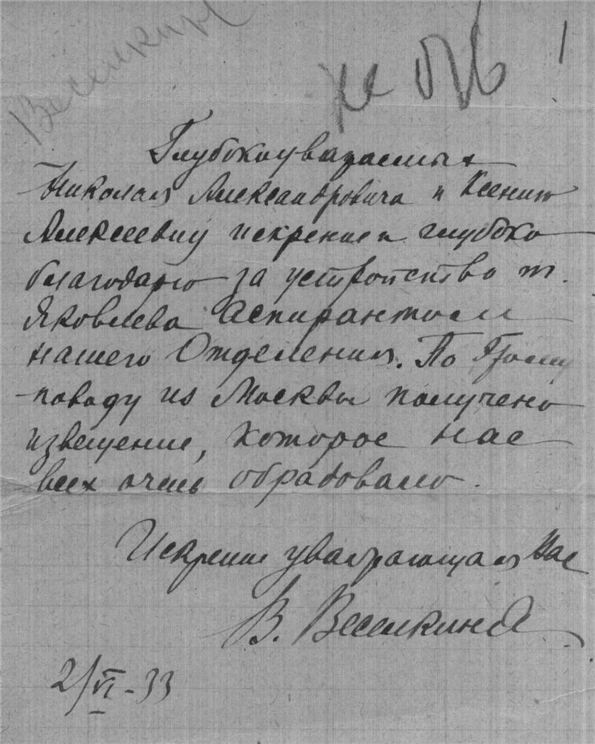 Веселкина
не отв
1
Глубокоуважаемых
Николая Александровича и Ксению
Алексеевну искренне и глубоко
благодарю за устройство т.
Яковлева аспирантом
нашего Отделения. По этому
поводу из Москвы получено
извещение, которое нас
всех очень обрадовало.
Искренне уважающая Вас
В. Веселкина
2/VI-33